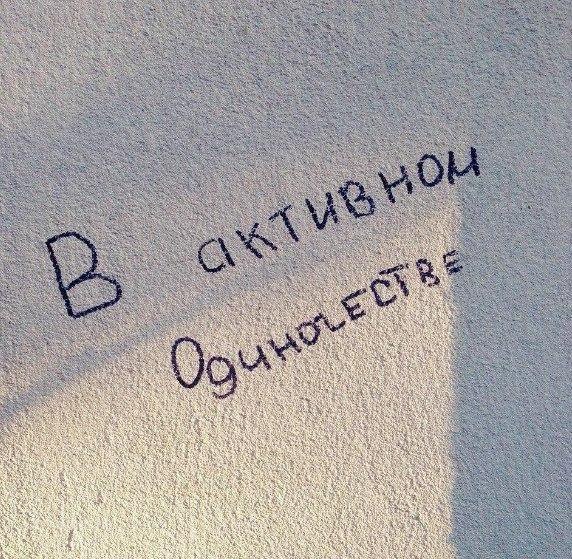 В активном
Одиночестве